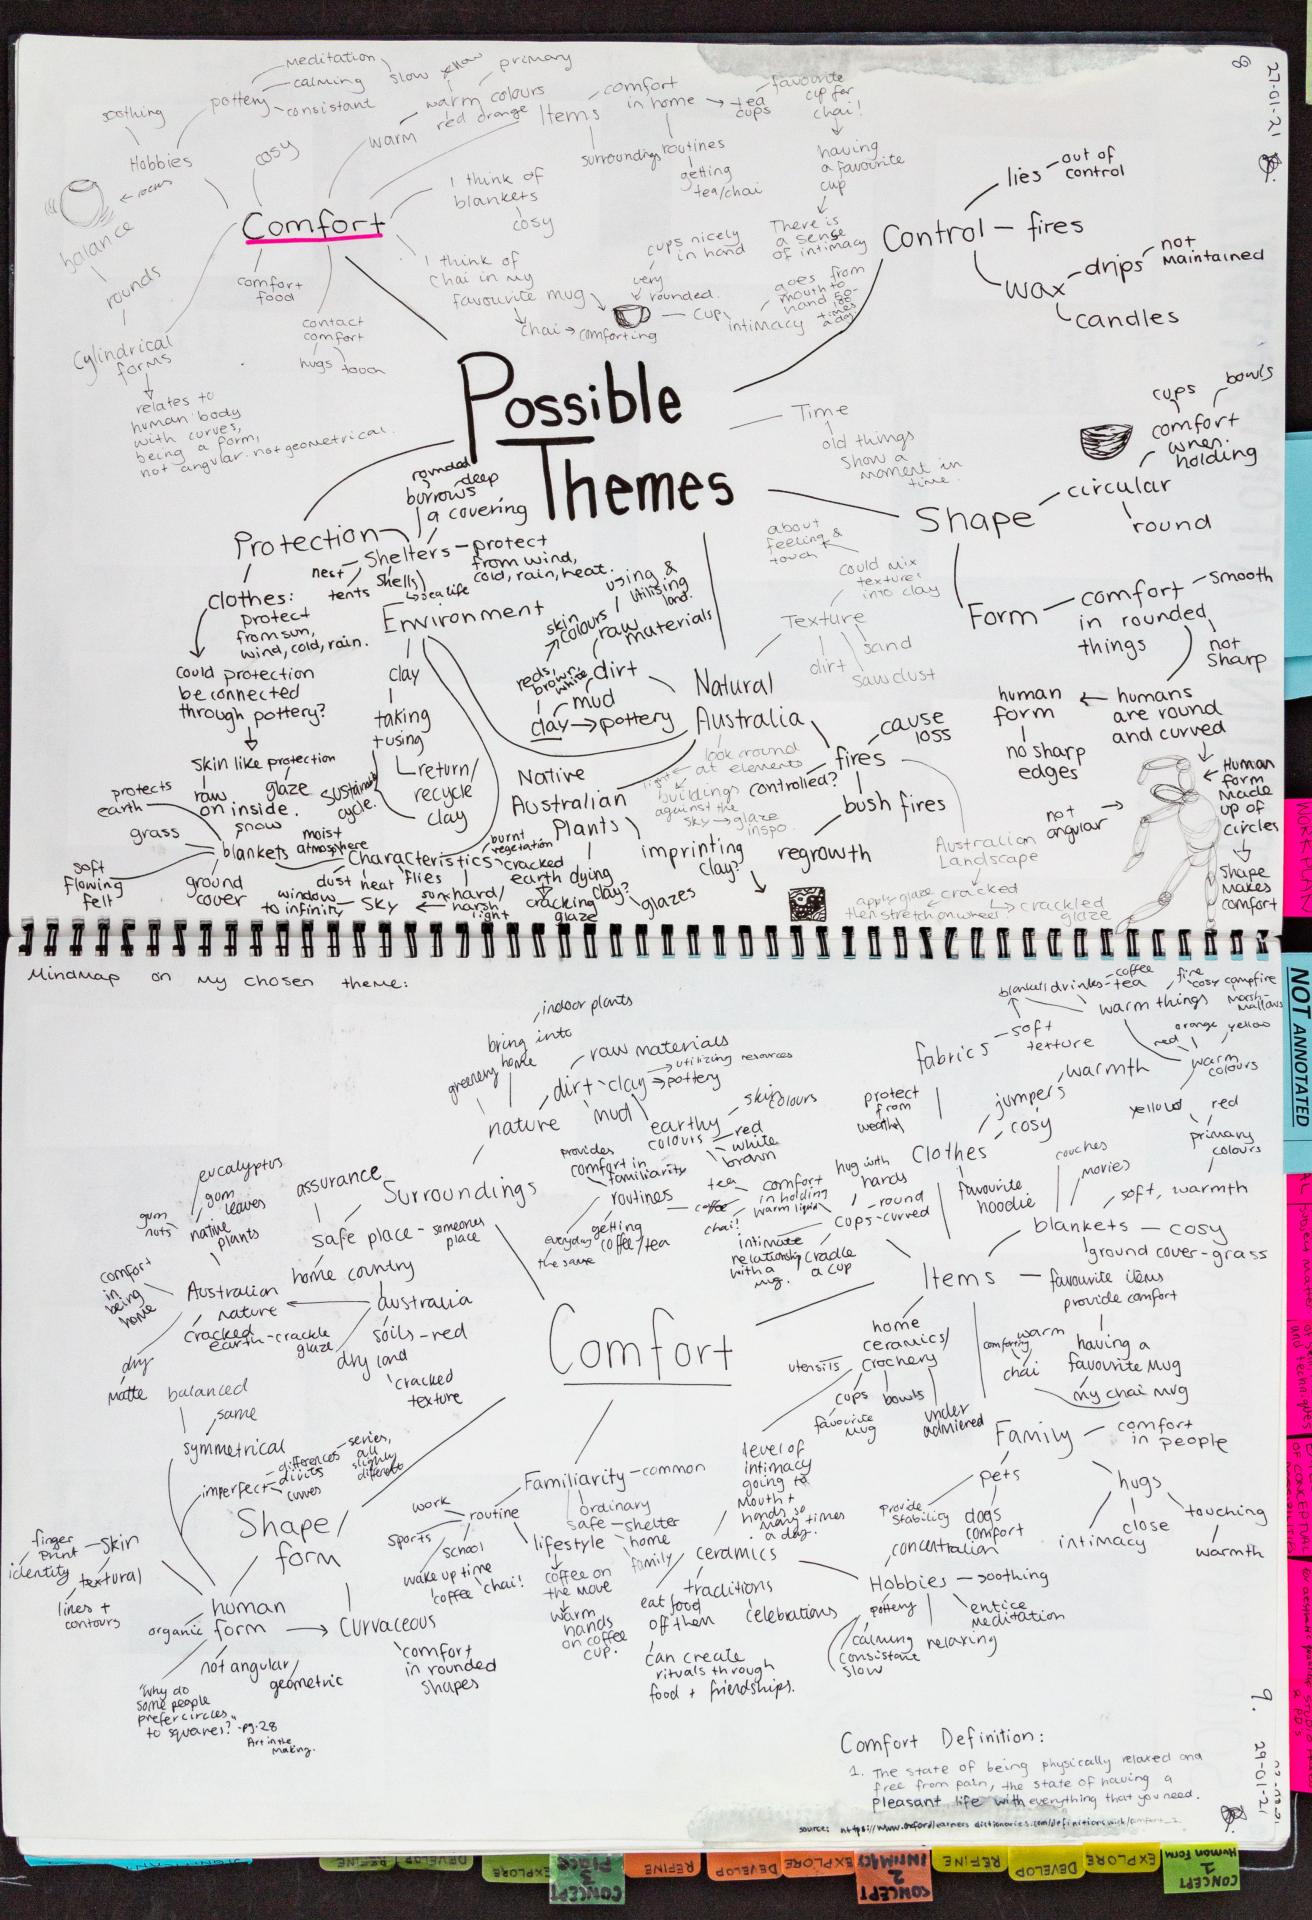 8
27-01-21
meditation
calming
consistant
pottery
soothing
Hobbies
cosy
slow
yellow
primary
warm colours
red orange
warm
Items
comfort
in home
tea
cups
favourite
cup for
chai!
having
a favourite
cup
There is
a sense
of intimacy
surroundings
routines
getting
tea/chai
I think of
blankets
cosy
balance
rounds
Cylindrical
forms
relates to
human body
with curves,
being a form,
not angular. not geometrical.
Comfort
comfort
food
contact
comfort
hugs
touch
I think of
chai in my
favourite mug
chai → comforting
cups nicely
in hand
very
rounded.
cup
intimacy
goes from
mouth to
hand so
times
a day.
Control
lies
out of
control
fires
wax
drips
not
maintained
candles
Possible
Themes
Time
old things
show a
moment in
time.
Shape
circular
round
comfort
when
holding
cups
bowls
Form
comfort
in rounded
things
smooth
not
sharp
humans
are round
and curved
human
form
no sharp
edges
not
angular
Human
form
made
up of
circles
Shape
makes
comfort
Protection
Clothes:
protect
from sun,
wind, cold, rain.
could protection
be connected
through pottery?
skin like protection
raw
on inside.
glaze
Shelters
rounded
deep
burrows
a covering
protect
from wind,
cold, rain, heat.
nest
tents
shells
sea life
Environment
clay
taking
+using
return/
recycle
clay
cycle.
Characteristics
blankets
protects
earth
grass
soft
flowing
felt
ground
cover
snow
moist
atmosphere
dust
heat
flies
sky
window
to infinity
sun
hard/
harsh
light
burnt
vegetation
cracked
earth
cracking
glaze
Natural
Australia
dirt
mud
clay → pottery
reds,
brown,
white
skin
colours
raw
materials
using &
utilising
land.
Texture
about
feeling &
touch
could mix
textures
into clay
dirt
sand
sawdust
look around
at elements
light
buildings
against the
sky → glaze
inspo.
fires
cause
loss
controlled?
bush fires
regrowth
Australian
Landscape
cracked
crackled
glaze
apply glaze
then stretch on wheel
Native
Australian
Plants
dying
clay?
glazes
imprinting
clay?
Mindmap on my chosen theme:
Comfort
Surroundings
nature
greenery
bring into
home
indoor plants
dirt
raw materials
clay
utilizing resources
pottery
mud
earthy
colours
skin colours
red
white
brown
assurance
safe place
someones
place
home country
australia
soils-red
dry land
cracked
texture
Australian
nature
native
plants
eucalyptus
gum
leaves
gum
nuts
comfort
in
being
home
cracked
earth-crackle
glaze
dry
matte
Items
provides
comfort in
familiarity
routines
everyday
the same
getting
coffee/tea
tea
coffee
chai!
comfort
in holding
warm liquid
cups-curved
round
hug with
hands
intimate
relationship
with a
mug.
cradle
a cup
Clothes
protect
from
weather
fabrics
soft
texture
blankets
jumpers
warmth
cosy
favourite
hoodie
warm things
drinks
coffee
tea
fire
cosy campfire
marsh-
mallows
warm
colours
red
orange
yellow
primary
colours
yellow
red
blankets
couches
movies
soft, warmth
cosy
ground cover-grass
favourite items
provide comfort
having a
favourite mug
my chai mug
warm
comforting
chai
home
ceramics/
crockery
utensils
cups
favourite
mug
bowls
under
admiered
Family
comfort
in people
hugs
intimacy
close
touching
warmth
pets
provide
stability
dogs
comfort
Hobbies
concentration
soothing
entice
meditation
relaxing
pottery
calming
consistant
slow
ceramics
level of
intimacy
going to
mouth +
hands so
many times
a day.
traditions
celebrations
eat food
off them
can create
rituals through
food + friendships.
Familiarity
common
ordinary
safe
shelter
home
family
lifestyle
coffee on
the move
warm
hands
on coffee
cup.
routine
work
sports
school
wake up time
coffee
chai!
Shape/
form
human
form
organic
not angular/
geometric
Curvaceous
comfort
in rounded
shapes
"Why do
some people
prefer circles
to squares?"
-pg.28
Art in the
Making.
skin
finger
print
identity
textural
lines +
contours
symmetrical
balanced
same
imperfect
differences
divits
curves
series,
all
slightly
different
Comfort Definition:
1. The state of being physically relaxed and
free from pain, the state of having a
pleasant life with everything that you need.
9.
29-01-21
NOT ANNOTATED
WORK PLAN
REFINE
DEVELOP
EXPLORE
CONCEPT
3
PLACE
REFINE
DEVELOP
EXPLORE
CONCEPT
2
INTIMACY
REFINE
DEVELOP
EXPLORE
CONCEPT
1
Human Form